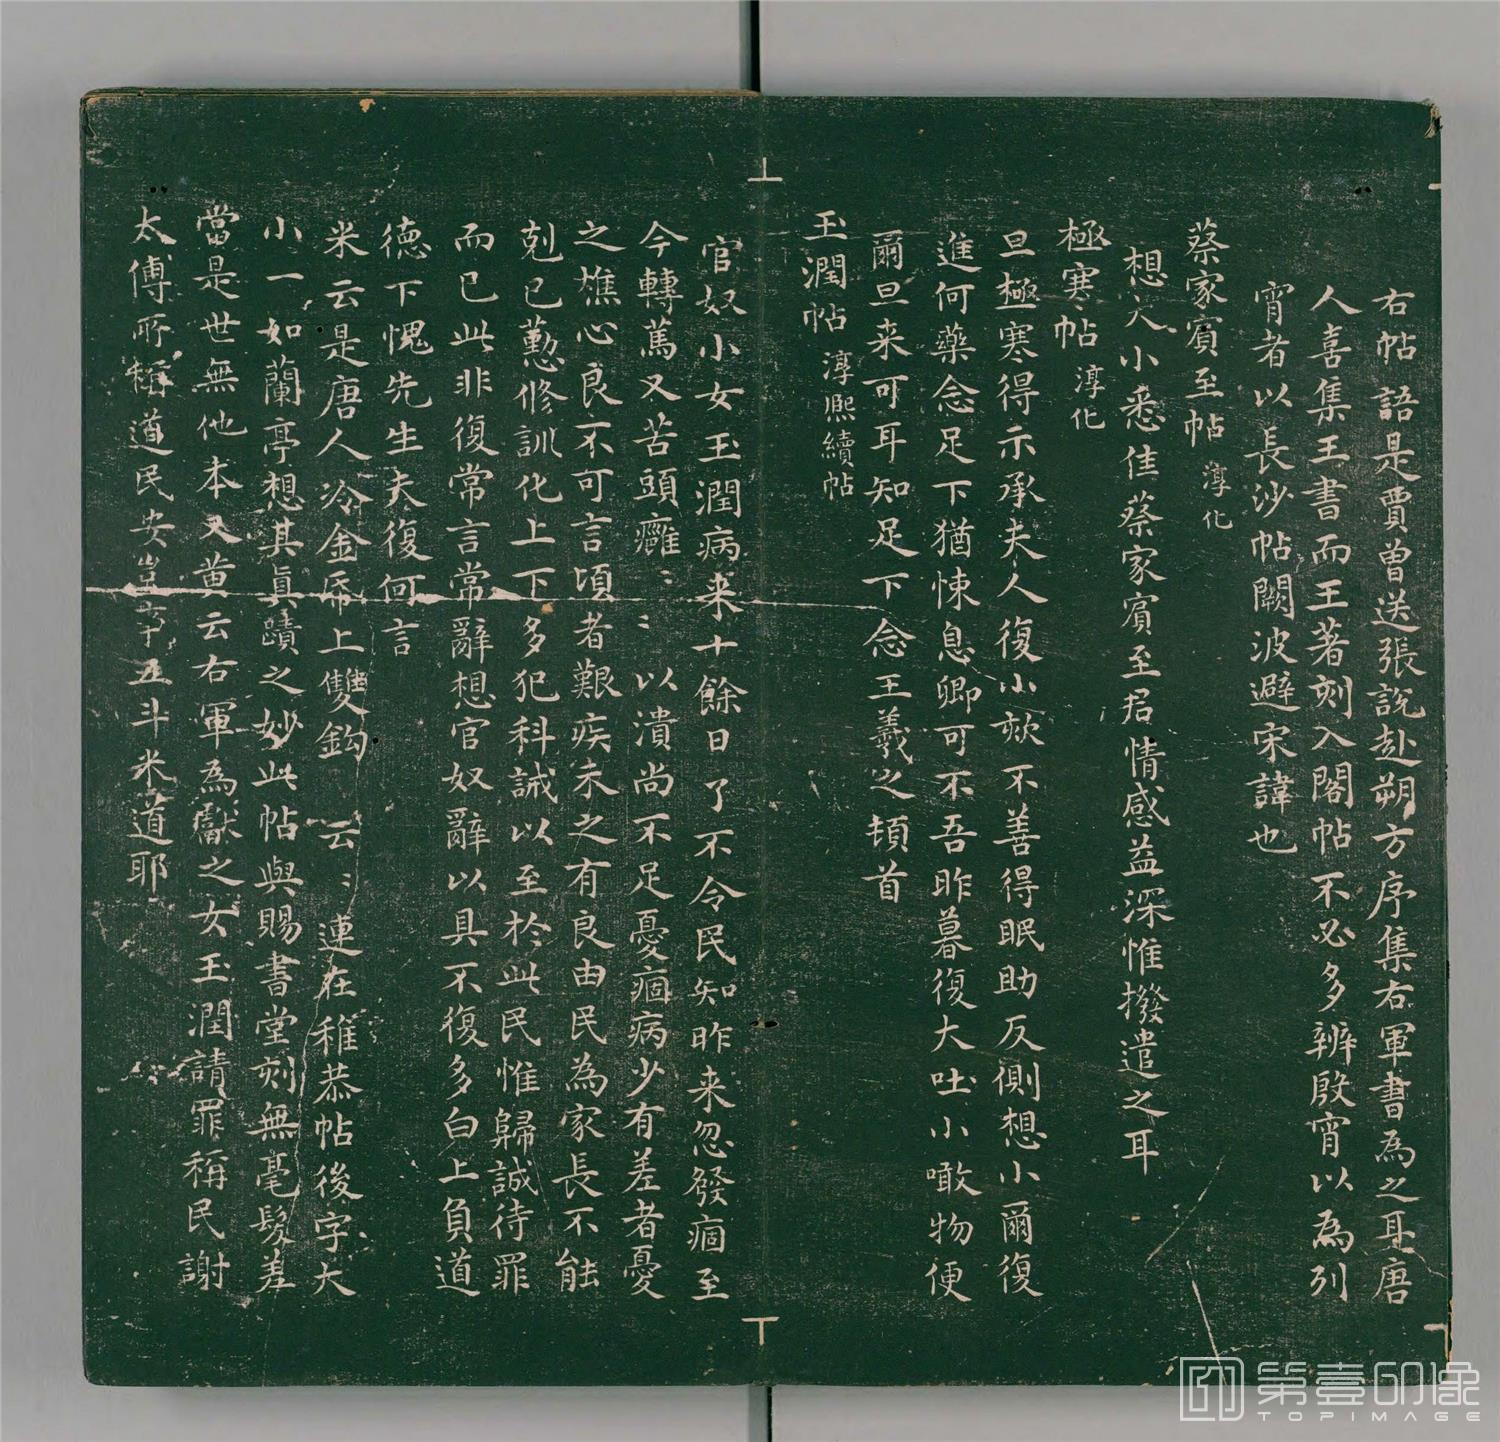 右帖語是賈曾送張說赴朔方序集右軍書為之耳唐
人喜集王書而王著刻入閣帖不必多辨殷宵以為列
宵者以長沙帖闕波避宋諱也
蔡家賓至帖 淳化
想大小悉佳蔡家賓至君情感益深惟撥遣之耳
極寒帖 淳化
旦極寒得示承夫人復小欬不善得眠助反側想小爾復
進何藥念足下猶悚息卿可不吾昨暮復大吐小噉物便
爾旦来可耳知足下念王羲之頓首
玉潤帖 淳熙續帖
官奴小女玉潤病来十餘日了不令民知昨来忽發痼至
今轉篤又苦頭癰〻〻以潰尚不足憂痼病少有差者憂
之燋心良不可言頃者艱疾未之有良由民為家長不能
剋己懃修訓化上下多犯科誡以至於此民惟歸誠待罪
而已此非復常言常辭想官奴辭以具不復多白上負道
德下愧先生夫復何言
米云是唐人冷金帋上雙鈎云〻連在稚恭帖後字大
小一如蘭亭想其真蹟之妙此帖與賜書堂刻無毫髮差
當是世無他本又黄云右軍為獻之女玉潤請罪稱民謝
太傅所稱道民安豈亦五斗米道耶
第壹印像
TOPIMAGE